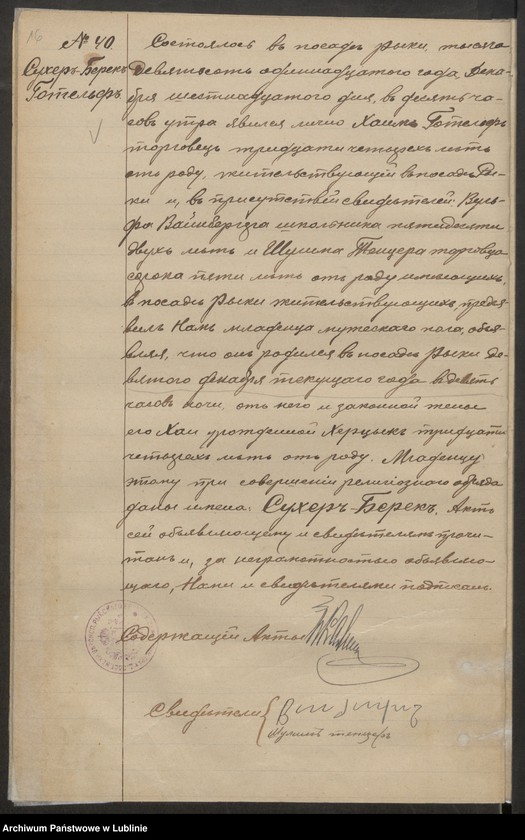 16
№ 40.
Сухеръ-Берекъ
Готельфъ.
Состоялось въ посадѣ Рыки, тысяча
девятьсотъ одиннадцатого года, Дека-
бря шестнадцатого дня, въ десять ча-
совъ утра явился лично Хаимъ Готельфъ
торговецъ тридцати четырехъ лѣтъ
отъ роду, жительствующій въ посадѣ Ры-
ки и, въ присутствіи свидѣтелей: Вуль-
фа Вайнберга школьника пятидесяти
двухъ лѣтъ и Шулима Тенцера торговца
сорока пяти лѣтъ отъ роду имѣющихъ,
въ посадѣ Рыки жительствующихъ, предъя-
вилъ Намъ младенца мужескаго пола, объя-
вляя, что онъ родился въ посадѣ Рыки де-
вятого декабря текущаго года въ девять
часовъ ночи, отъ него и законной жены
его Хаи урожденной Херцыкъ тридцати
четырехъ лѣтъ отъ роду. Младенцу
этому при совершеніи религіознаго обряда
даны имена: Сухеръ-Берекъ. Актъ
сей объявляющему и свидѣтелямъ прочи-
танъ и, за неграмотностью объявляю-
щаго, Нами и свидѣтелями подписанъ.
Содержащій Акты
Свидѣтели
Шулимъ тенцеръ
Archiwum Państwowe w Lublinie